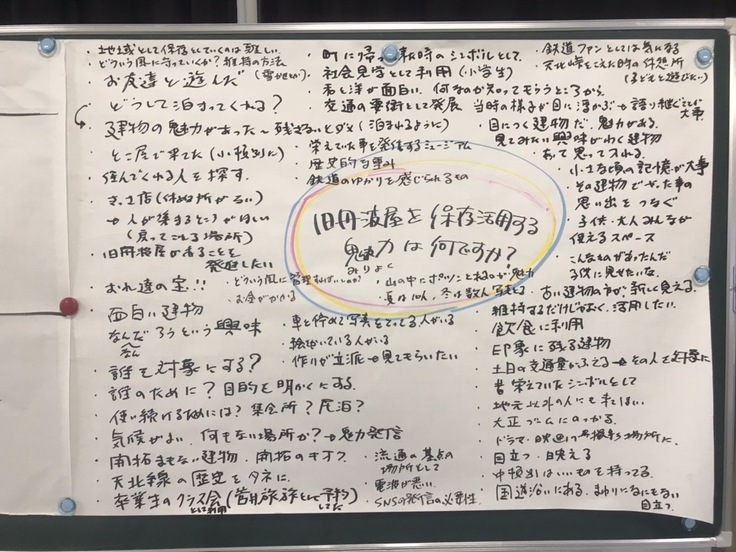 旧丹波屋を保存活用する
魅力は何ですか？
みりょく
・地域として保存していくのは難しい
どういう風に守っていくか？維持の方法
・お友達と遊んだ
・どうして泊まってくれる？
・建物の魅力があった〜残さないとダメ（泊まれるように）
・住んでくれる人を探す
・きっさ店（休む所がない）
→人が集まるところがほしい
（戻ってこれる場所）
・旧丹波屋があることを
発信したい
・おれ達の宝!!
・面白い建物
なんだろうという興味
・誰を対象にする？
・誰のために？目的を明かくにする
・使い続けるためには？集会所？民泊？
・気候がよい 何もない場所か？→魅力発信
・開拓まもない建物・開拓のキオク
・天北線の歴史をタネに
・卒業生のクラス会
として利用
・町に帰って来た時のシンボルとして
・社会見学として利用（小学生）
・和と洋が面白い 何なのか知ってもらうところから
・交通の要衝として発展
・栄えていた事を発信するミュージアム
・歴史的な重み
・鉄道のゆかりを感じられるもの
・どういう風に管理すればいいのか？
・お金がかかる
・山の中にポツンとあるのが魅力
・夏は10人、冬は数人写真とる
・車を停めて写真をとっている人がいる
・絵をかいている人がいる
・作りが立派→見てもらいたい
・流通の基点の
場所として
・電波が悪い
・SNSの発信の必要性
・鉄道ファンとしては気になる
・天北峠をこえた時の休憩所
（子どもと遊びたい）
当時の様子が目に浮かぶ→語り継ぐことが
大事
・目につく建物だ 魅力がある
見てみたい興味がわく建物
・あって思って入れる
・小さな頃の記憶が大事
・その建物であった事の
思い出をつなぐ
・子供・大人みんなが
使えるスペース
・こんなものがあったんだ
子供に見せたいな
・古い建物の方が新しく見える
・維持するだけじゃなく、活用したい
・飲食に利用
・印象に残る建物
・土日の交通量がふえる→その人を対象に
・昔栄えていたシンボルとして
・地元以外の人にも来てほしい
・大正ブームにのっかる
・ドラマ・映画の撮影場所に
・目立つ・映える
・中頓別はいいものを持ってる
・国道沿いにある、まわりになにもない
目立つ